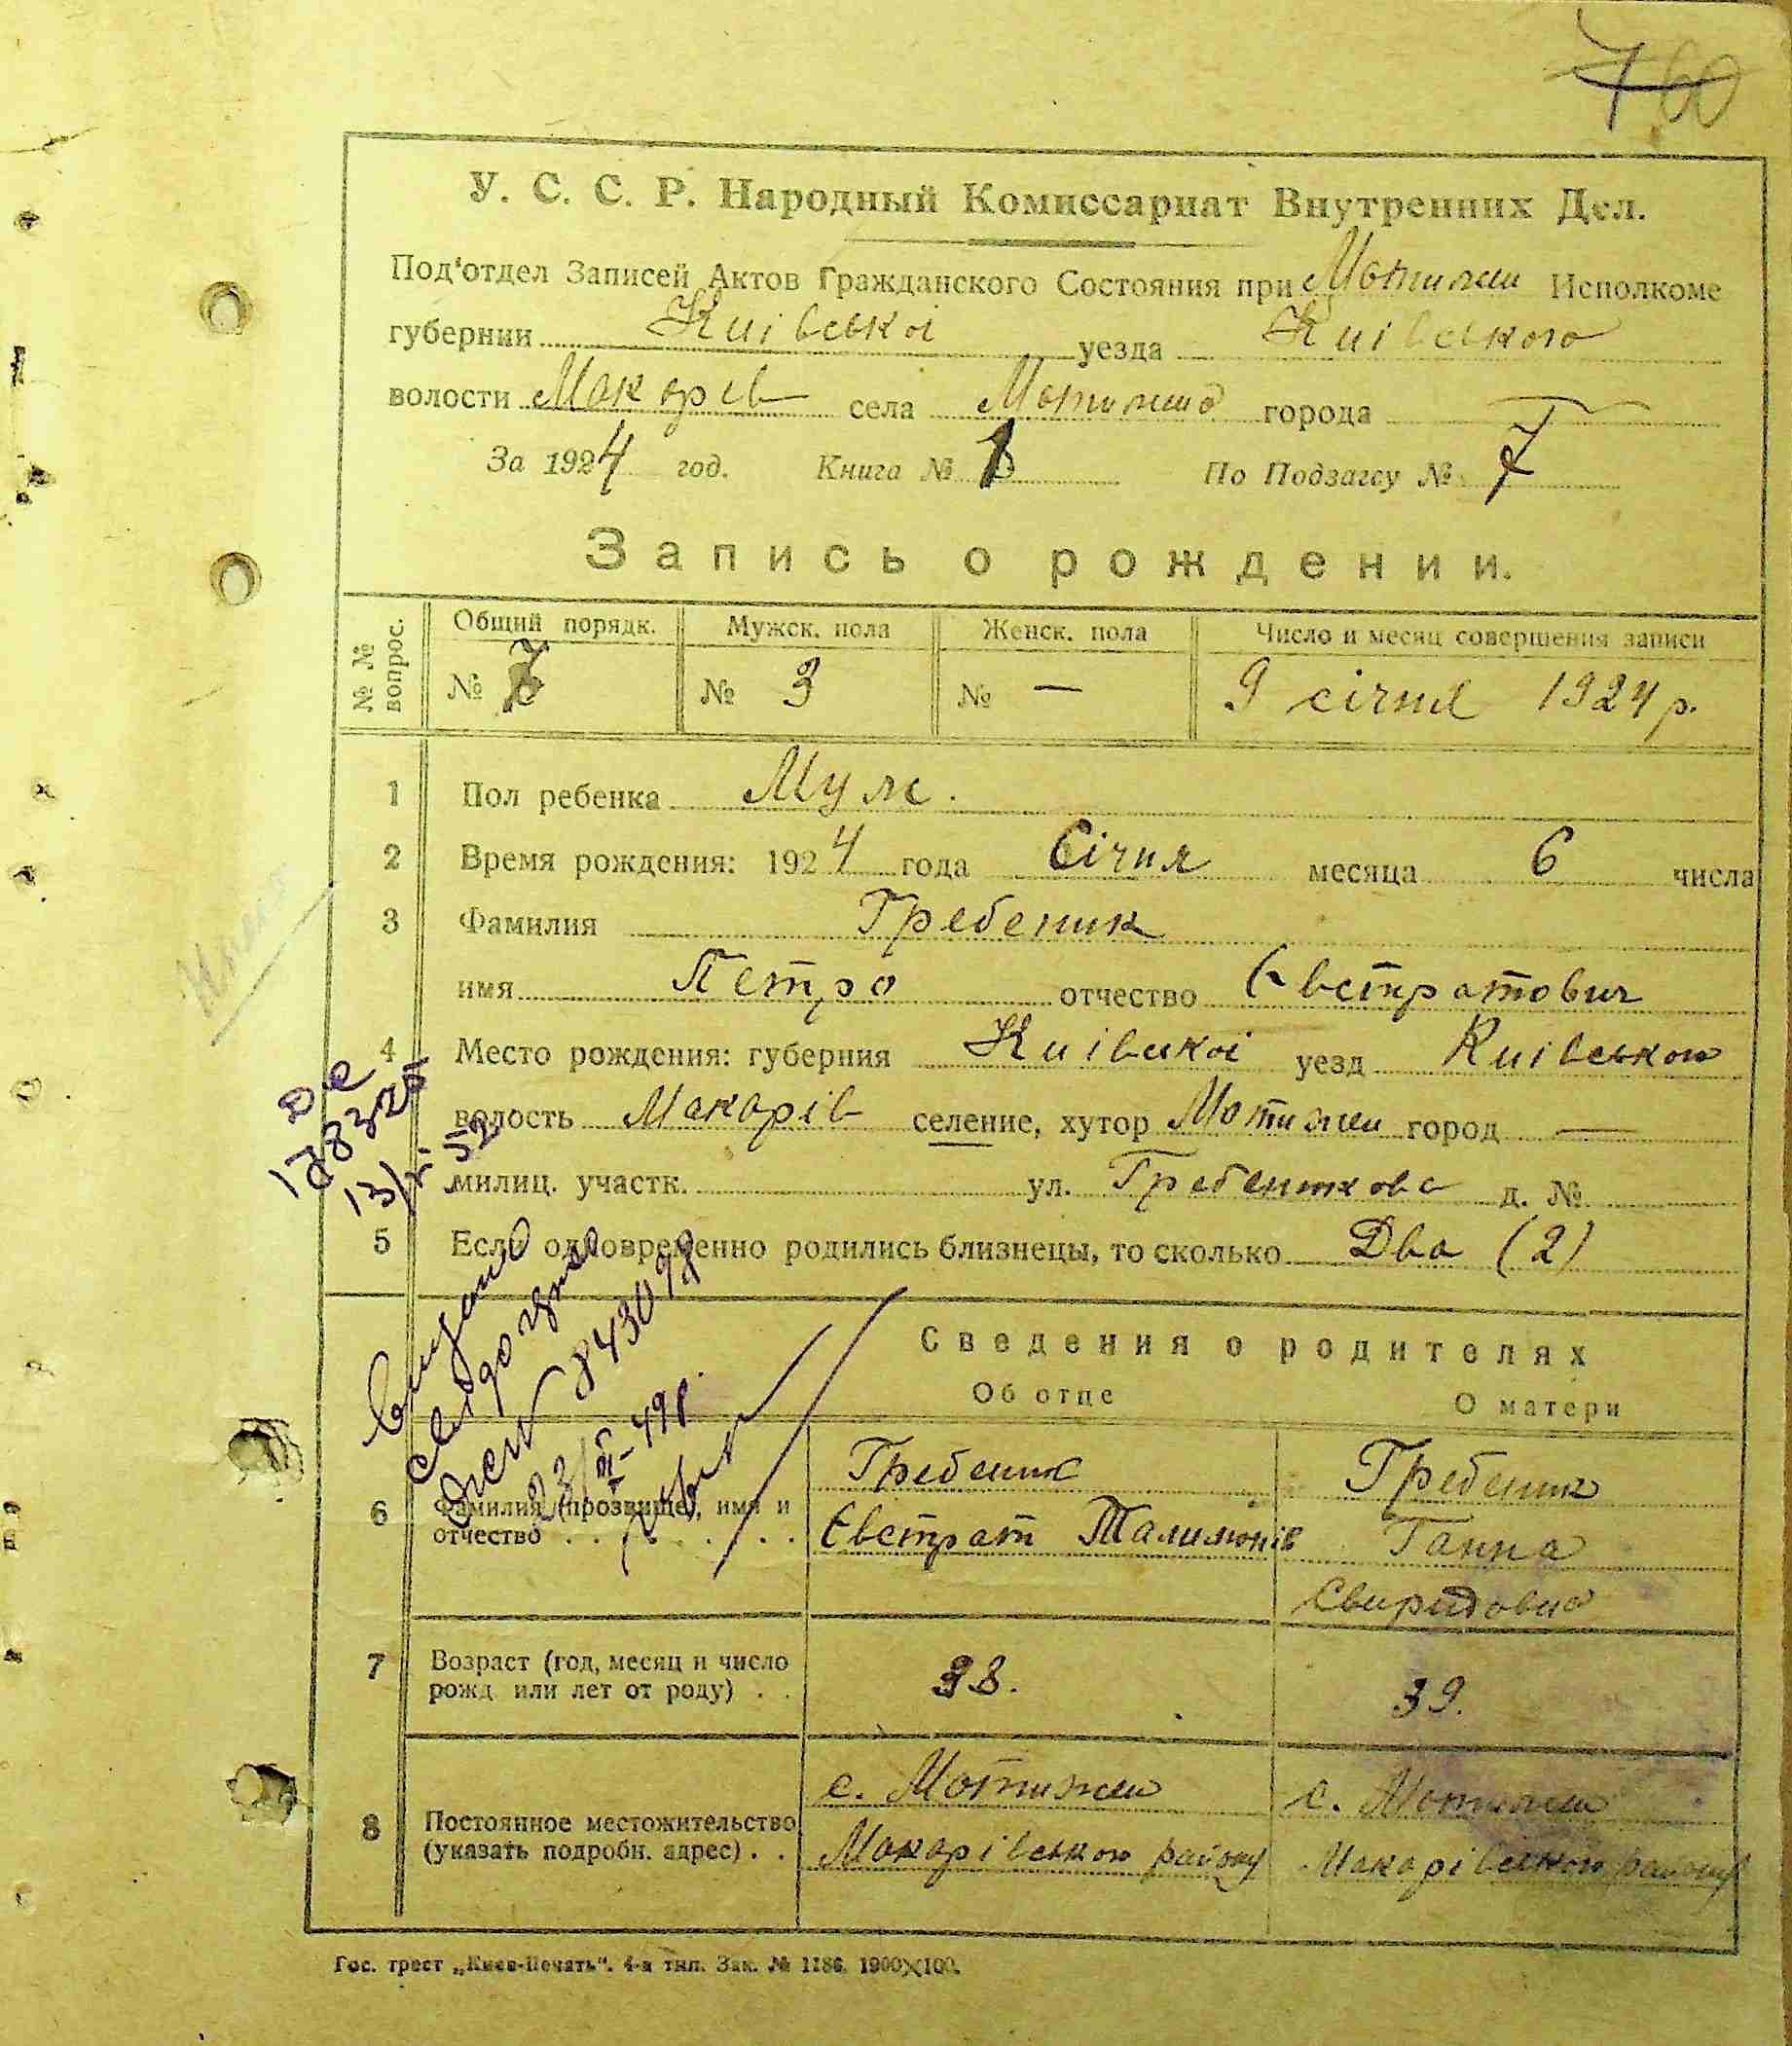 60
У. С. С. Р. Народный Комиссариат Внутренних Дел.
Под'отдел Записей Актов Гражданского Состояния при Мотижин Исполкоме
губернии Київської уезда Київського
волости Макарів села Мотижина города —
За 1924 год. Книга № 1 По Подзагсу № 7
Запись о рождении.
№ № вопрос. Общий порядк. Мужск. пола Женск. пола Число и месяц совершения записи
№ 7 № 3 № — 9 січня 1924 р.
1 Пол ребенка Муж.
2 Время рождения: 1924 года Січня месяца 6 числа
3 Фамилия Гребеник
имя Петро отчество Євстратович
4 Место рождения: губерния Київської уезд Київського
волость Макарів селение, хутор Мотижин город —
милиц. участк. ул. Гребеникова д. №
5 Если одновременно родились близнецы, то сколько Два (2)
Видано
свідоцтво
843098
23/VI-49р.
Сведения о родителях
Об отце О матери
6 Фамилия (прозвище), имя и отчество . . . . . .
Гребеник Гребеник
Євстрат Талимонів Ганна
Свиридовна
7 Возраст (год, месяц и число рожд или лет от роду) . .
38. 39.
8 Постоянное местожительство (указать подробн. адрес) . .
с. Мотижин с. Мотижин
Макарівського району Макарівського району
Гос. трест „Киев-Печать". 4-я тип. Зак. № 1186. 1900×100.